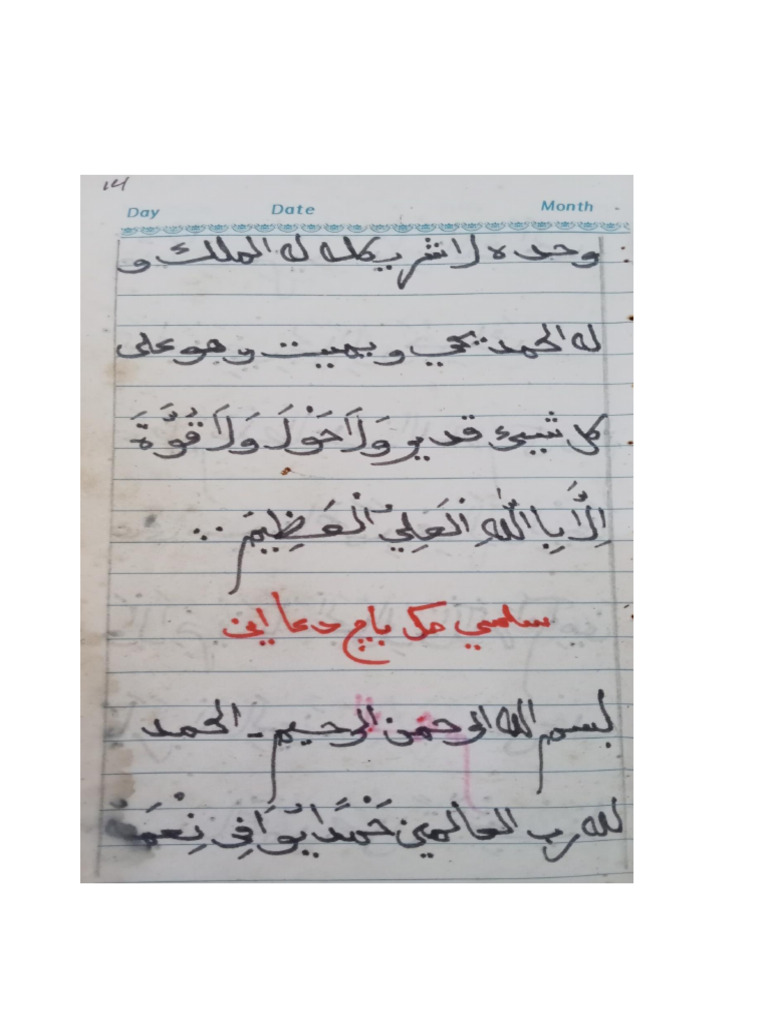 14
Day Date Month
وحده لا شريك له الملك و
له الحمد يحي ويميت وهو على
كل شيئ قدير وَلَاحَوْلَ وَلَا قُوَّةَ
اِلَّا بِااللّٰهِ الْعَلِيُّ الْعَظِيْمَ
سلسي مك باچ دعا اين
بسم الله الرحمن الرحيم - الحمد
لله رب العالمين حَمْدًا يُوَافِى نِعْمَهُ